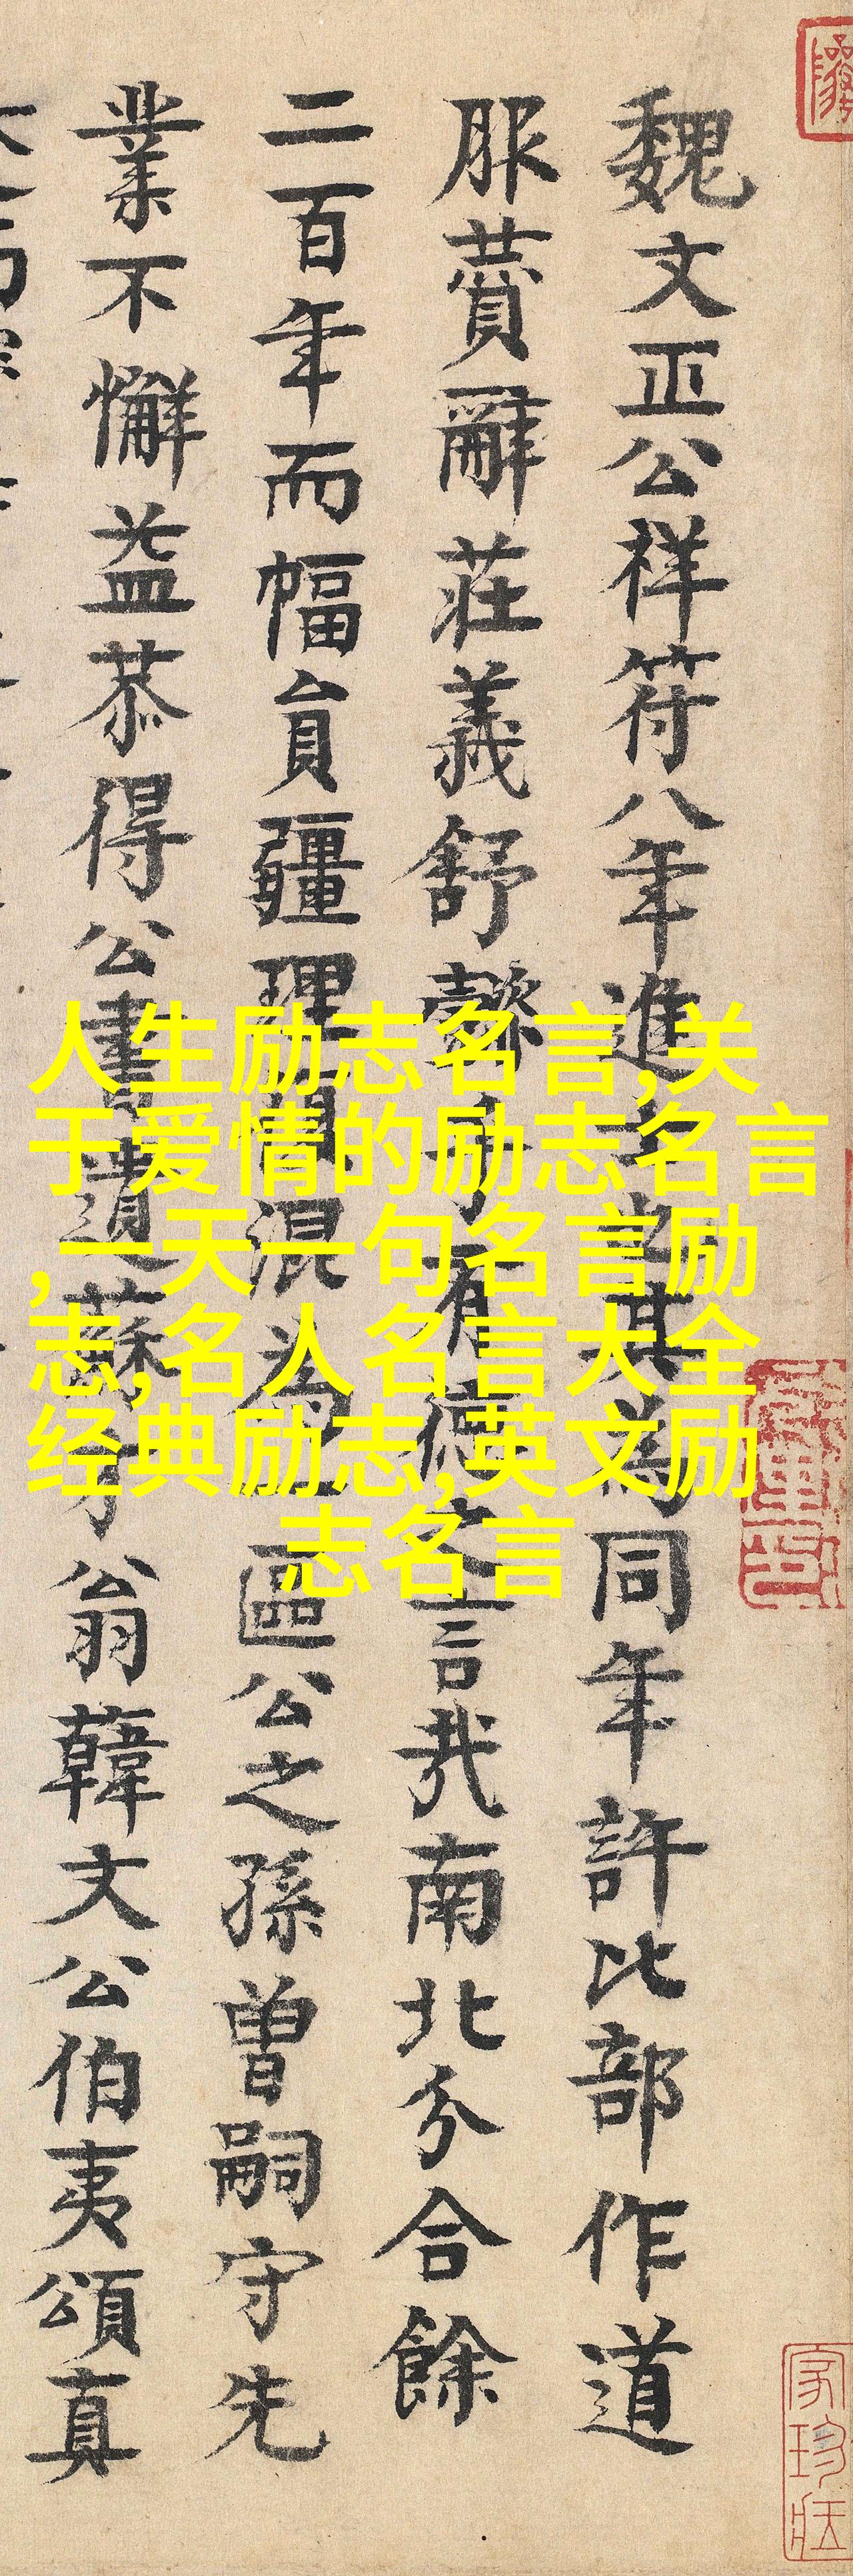 魏文正公祥符八年進士其為同年許比部作道
服賛辭莊義舒乎有德之言哉南北分合餘
二百年而幅員疆理混為區公之孫曽嗣守先
業不懈益恭得公書遺蘇才翁韓文公伯夷頌真
人生励志名言,关
于爱情的励志名言
,一天一句名言励
志,名人名言大全
经典励志,英文励
志名言